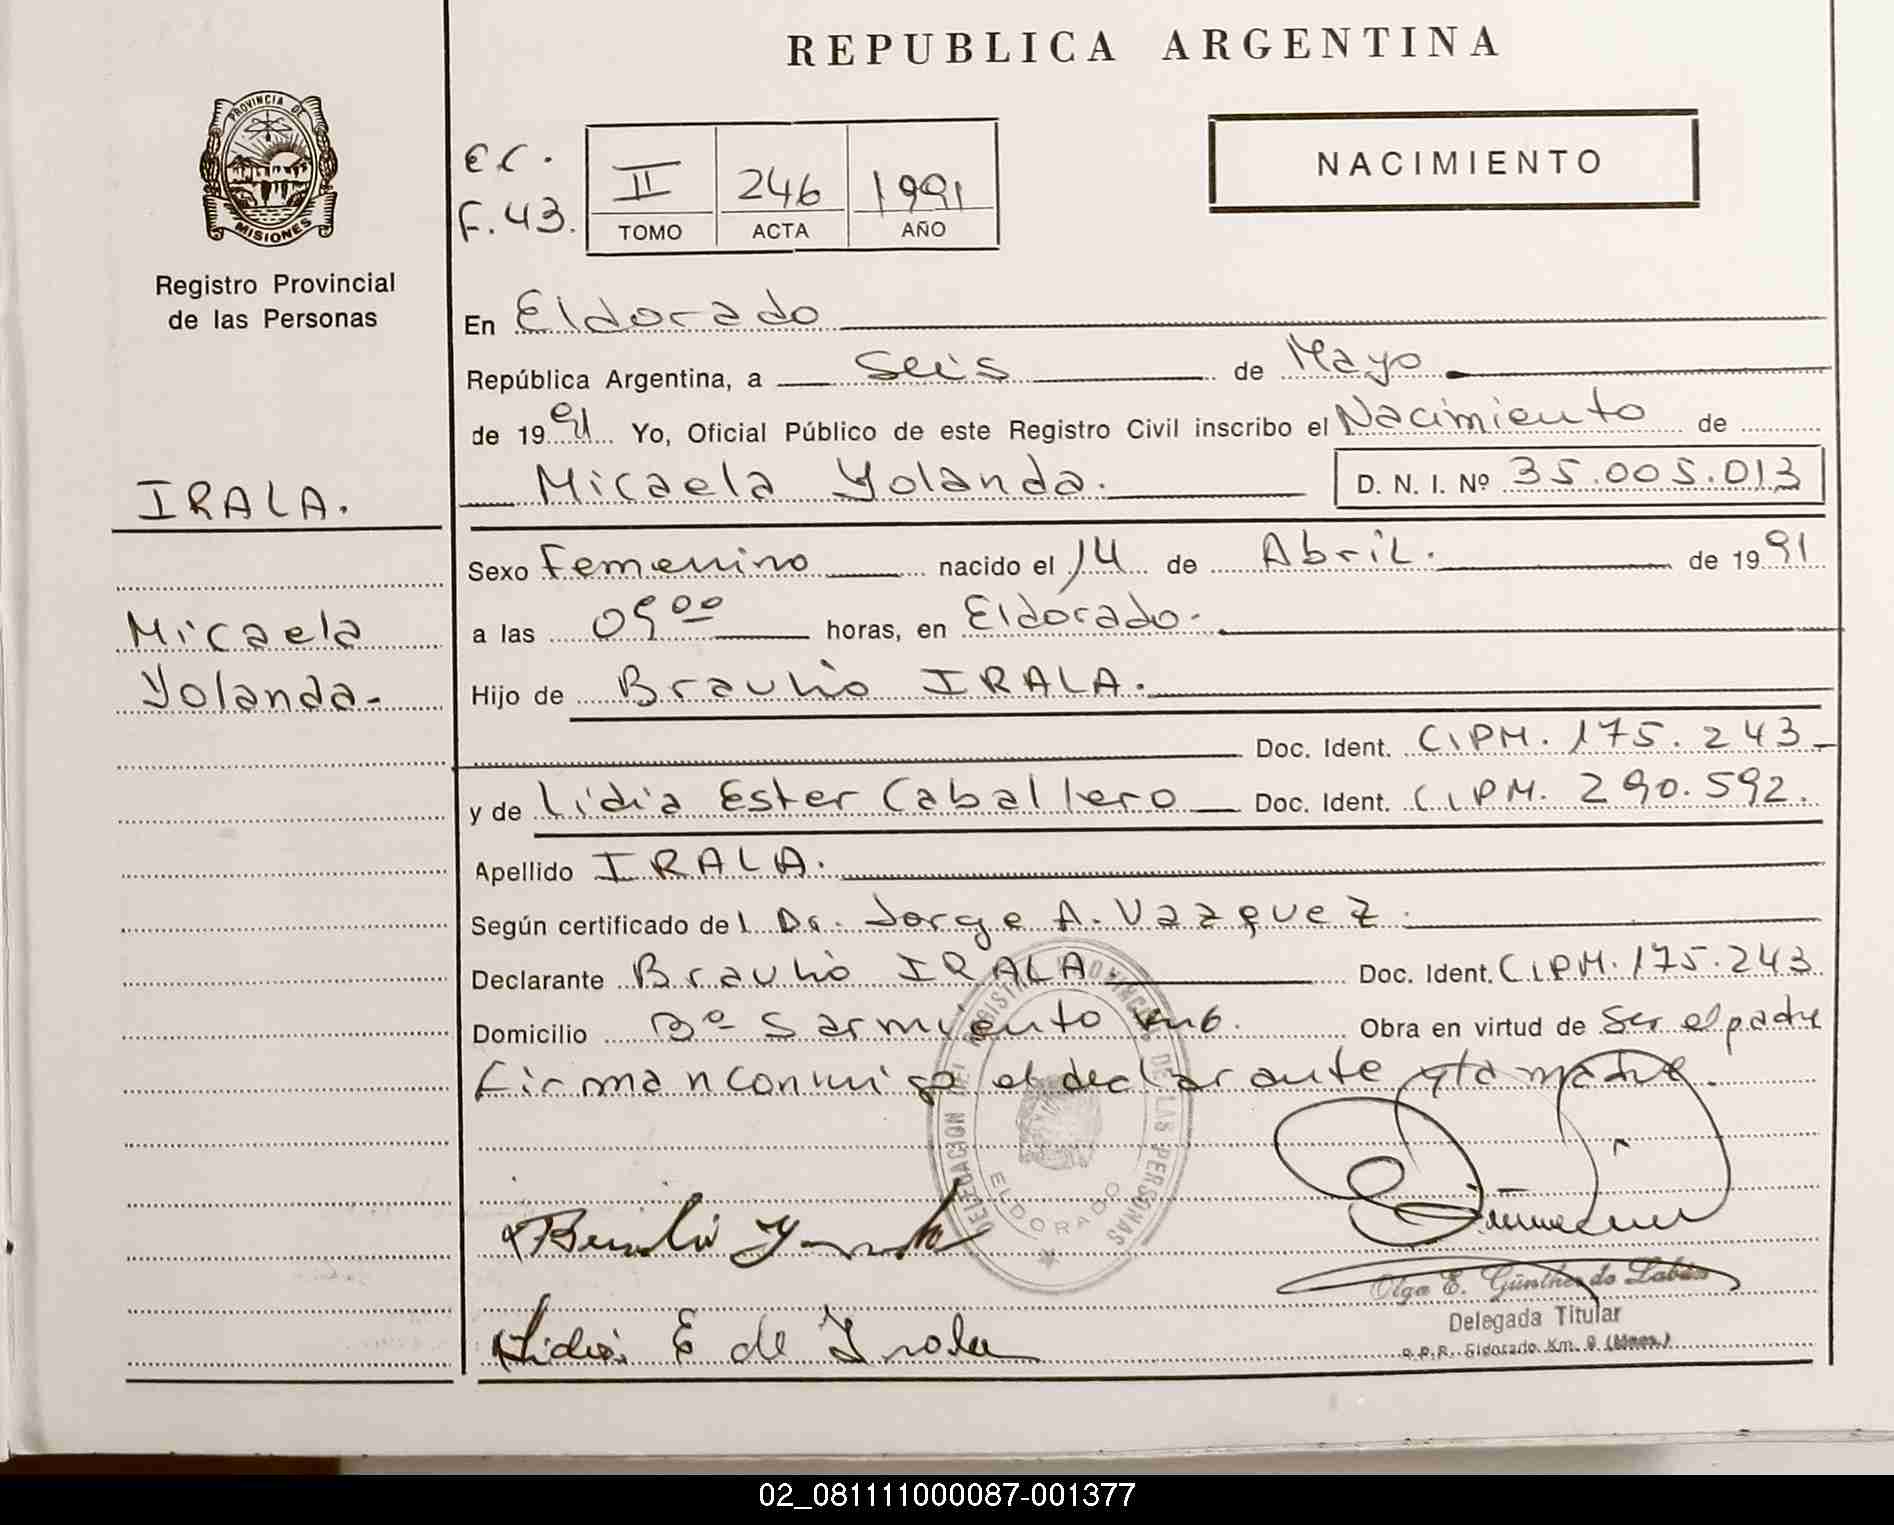 REPUBLICA ARGENTINA
PROVINCIA DE
MISIONES
Registro Provincial
de las Personas
E.C.
F. 43.
II 246 1991
TOMO ACTA AÑO
NACIMIENTO
En Eldorado
República Argentina, a Seis de Mayo
de 19 91 Yo, Oficial Público de este Registro Civil inscribo el Nacimiento de
Micaela Yolanda. D. N. I. Nº 35.005.013
IRALA.
Micaela
Yolanda.
Sexo Femenino nacido el 14 de Abril. de 19 91
a las 09 00 horas, en Eldorado.
Hijo de Braulio IRALA.
Doc. Ident. CIPM. 175.243
y de Lidia Ester Caballero Doc. Ident. CIPM. 290.592.
Apellido IRALA.
Según certificado de l Dr. Jorge A. Vazquez.
Declarante Braulio IRALA Doc. Ident. CIPM. 175.243
Domicilio Bº Sarmiento Obra en virtud de Ser el padre
Firman conmigo el declarante y la madre.
DELEGACION DEL REGISTRO PROVINCIAL DE LAS PERSONAS
ELDORADO
Lidia E de Irala
Olga E. Günther de
Delegada Titular
R.P.P. Eldorado Km. 9 (Mnes.)
02_081111000087-001377